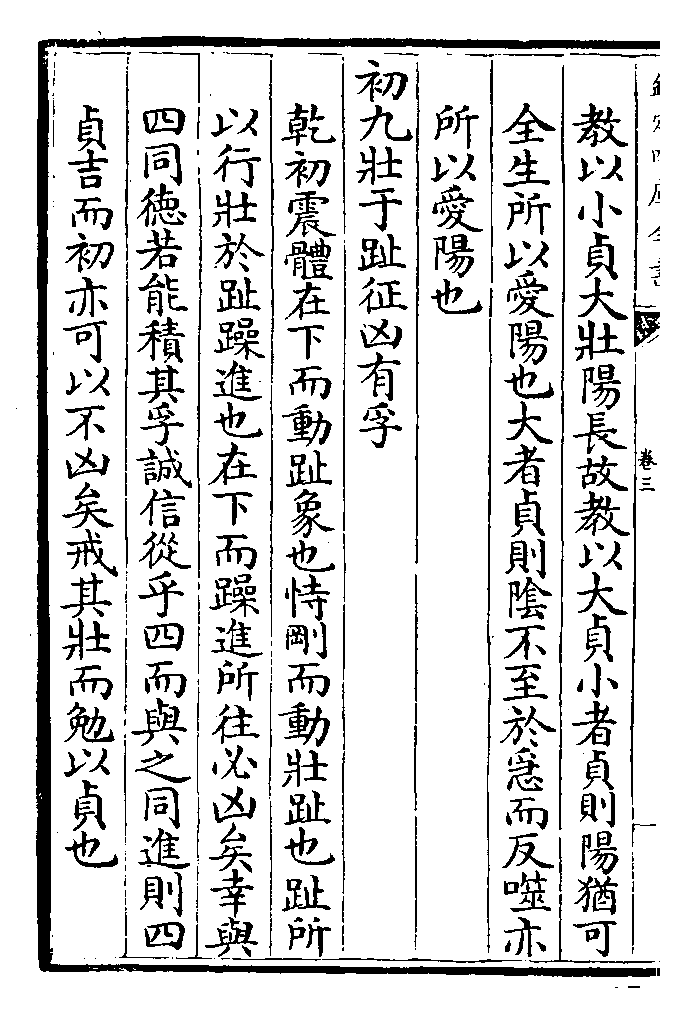 教以小貞大壯陽長故教以大貞小者貞則陽猶可
全生所以愛陽也大者貞則陰不至於惡而反噬亦
所以愛陽也
初九壯于趾征凶有孚
乾初震體在下而動趾象也恃剛而動壯趾也趾所
以行壯於趾躁進也在下而躁進所往必凶矣幸與
四同德若能積其孚誠信從乎四而與之同進則四
貞吉而初亦可以不凶矣戒其壯而勉以貞也
卷三